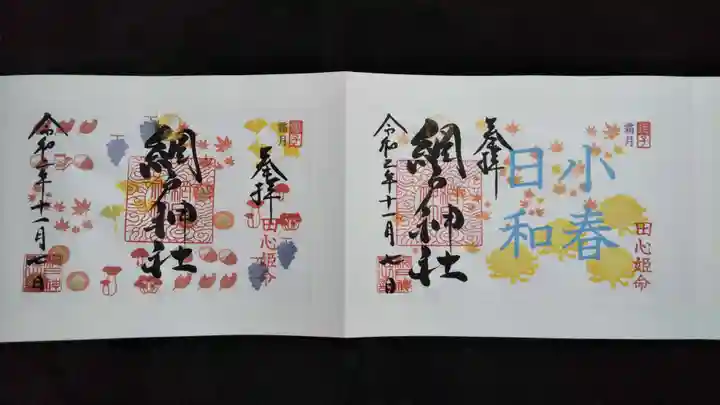 霜月
奉拝
田心姫命
網戸神社
令和二年十一月七日
霜月
奉拝
小春
日和
田心姫命
網戸神社
令和二年十一月七日